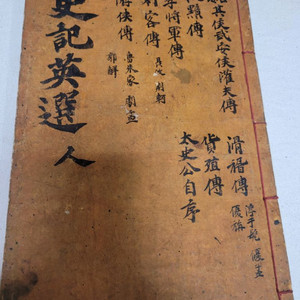 史記英選 人
其侯武安侯灌夫傳
將軍傳
刺客傳 荊軻
游俠傳 魯朱家 劇孟
郭解
滑稽傳 淳于髡 優孟
優旃
貨殖傳
太史公自序